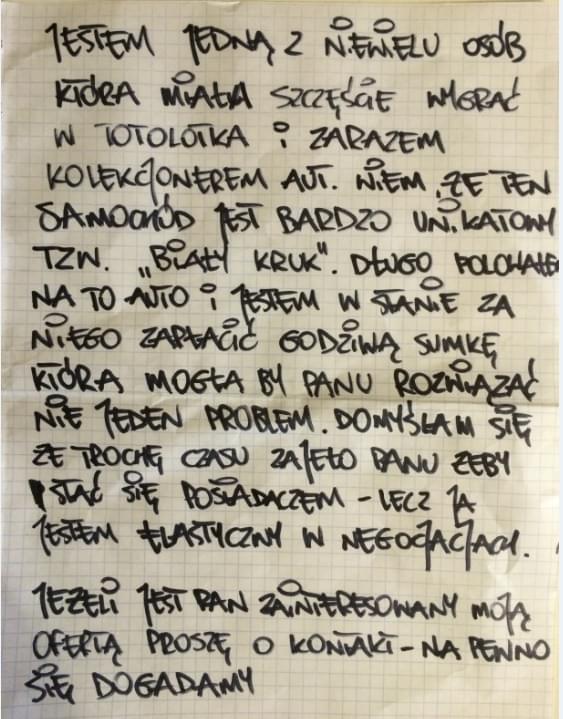 JESTEM JEDNĄ Z NIEWIELU OSÓB
KTÓRA MIAŁA SZCZĘŚCIE WYGRAĆ
W TOTOLOTKA i ZARAZEM
KOLEKCJONEREM AUT. WIEM, ŻE TEN
SAMOCHÓD JEST BARDZO UNIKATOWY
TZW. „BIAŁY KRUK". DŁUGO POLOWAŁEM
NA TO AUTO i JESTEM W STANIE ZA
NIEGO ZAPŁACIĆ GODZIWĄ SUMKĘ
KTÓRA MOGŁA BY PANU ROZWIĄZAĆ
NIE JEDEN PROBLEM. DOMYŚLAM SIĘ
ŻE TROCHĘ CZASU ZAJEŁO PANU ŻEBY
STAĆ SIĘ POSIADACZEM - LECZ JA
JESTEM ELASTYCZNY W NEGOCJACJACH.
JEŻELI JEST PAN ZAINTERESOWANY MOJĄ
OFERTĄ PROSZĘ O KONTAKT - NA PEWNO
SIĘ DOGADAMY